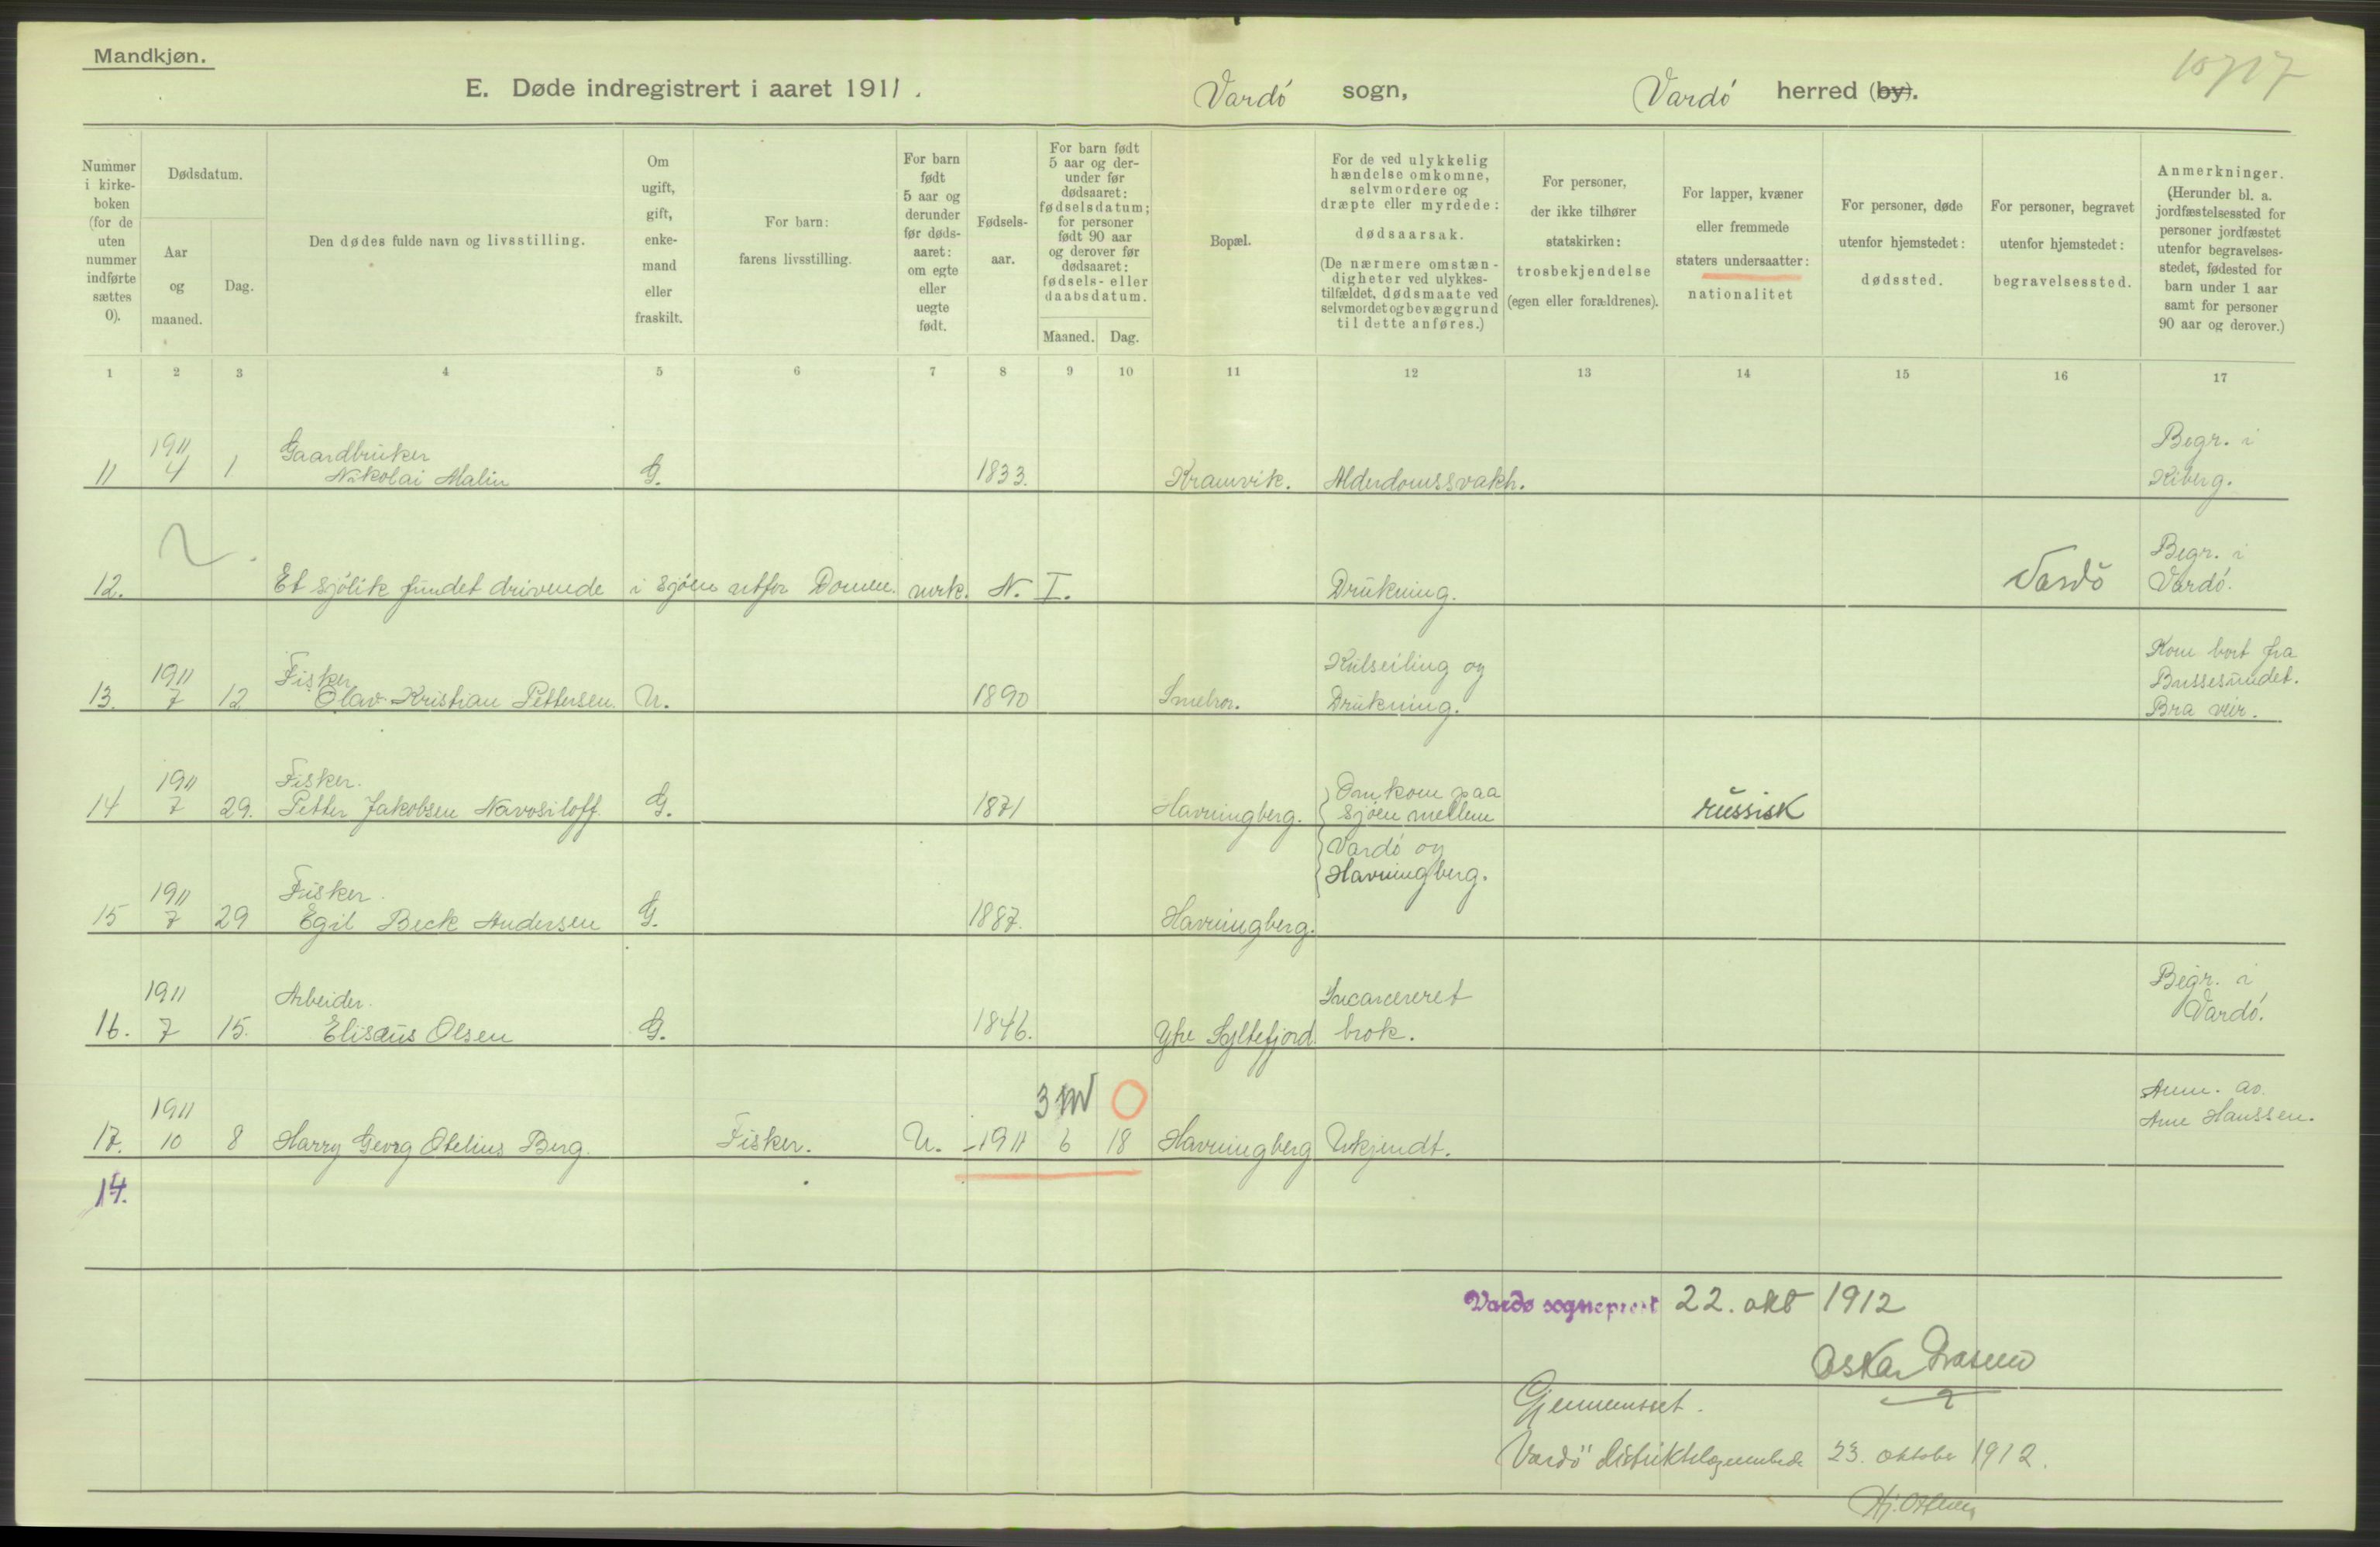 Mandkjøn.
10717
E. Døde indregistrert i aaret 1911.
Vardö sogn,
Vardö herred (by).
Nummer i kirke- boken (for de uten nummer indførte sættes 0).
Dødsdatum.
Aar og maaned.
Dag.
Den dødes fulde navn og livsstilling.
Om ugift, gift, enke- mand eller fraskilt.
For barn: farens livsstilling.
For barn født 5 aar og derunder før døds- aaret: om egte eller uegte født.
Fødsels- aar.
For barn født 5 aar og der- under før dødsaaret: fødselsdatum; for personer født 90 aar og derover før dødsaaret: fødsels- eller daabsdatum.
Maaned. Dag.
Bopæl.
For de ved ulykkelig hændelse omkomne, selvmordere og dræpte eller myrdede: dødsaarsak.
(De nærmere omstæn- digheter ved ulykkes- tilfældet, dødsmaate ved selvmordet og bevæggrund til dette anføres.)
For personer, der ikke tilhører statskirken: trosbekjendelse (egen eller forældrenes).
For lapper, kvæner eller fremmede staters undersaatter: nationalitet
For personer, døde utenfor hjemstedet: dødssted.
For personer, begravet utenfor hjemstedet: begravelsessted.
Anmerkninger. (Herunder bl. a. jordfæstelsessted for personer jordfæstet utenfor begravelses- stedet, fødested for barn under 1 aar samt for personer 90 aar og derover.)
1 2 3 4 5 6 7 8 9 10 11 12 13 14 15 16 17
11 1911 4 1 Gaardbruker Nikolai Malin G. 1833. Kramvik. Alderdomssvakh. Begr. i Kiberg.
12. Et sjölik fundet drivende i sjöen utfor Domen. merk. N. I. Drukning. Vardö Begr. i Vardö.
13. 1911 7 12 Fisker Olav Kristian Pettersen. U. 1890 Smelror. Kulseiling og Drukning. Kom bort fra Bussesundet. Bra veir.
14 1911 7 29. Fisker. Petter Jakobsen Navosiloff. G. 1871 Havningberg. Omkom paa sjöen mellem Vardö og Havningberg. russisk
15 1911 7 29 Fisker. Egil Beck Andersen G. 1887. Havningberg.
16. 1911 7 15. Arbeider. Elisæus Olsen G. 1846. Ytre Syltefjord. Incarcereret brok. Begr. i Vardö.
3 M
17. 1911 10 8 Harry Georg Otelius Berg. Fisker. U. 1911 6 18 Havningberg Ukjendt. Anm. av. Arne Hanssen.
14.
Vardø sogneprest 22. okt 1912
Oskar
Gjennemset.
Vardö distriktslægeembede 23. oktober 1912.